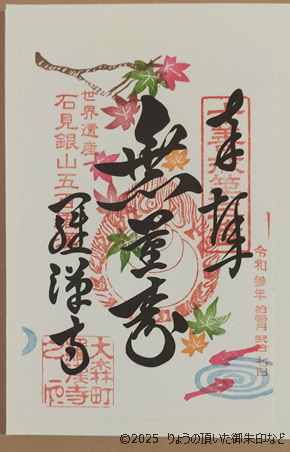 奉拝
令和 参年
無量壽
世界遺産
石見銀山五
羅漢寺
大森町
羅漢寺
之印
©2025 りょうの頂いた御朱印など